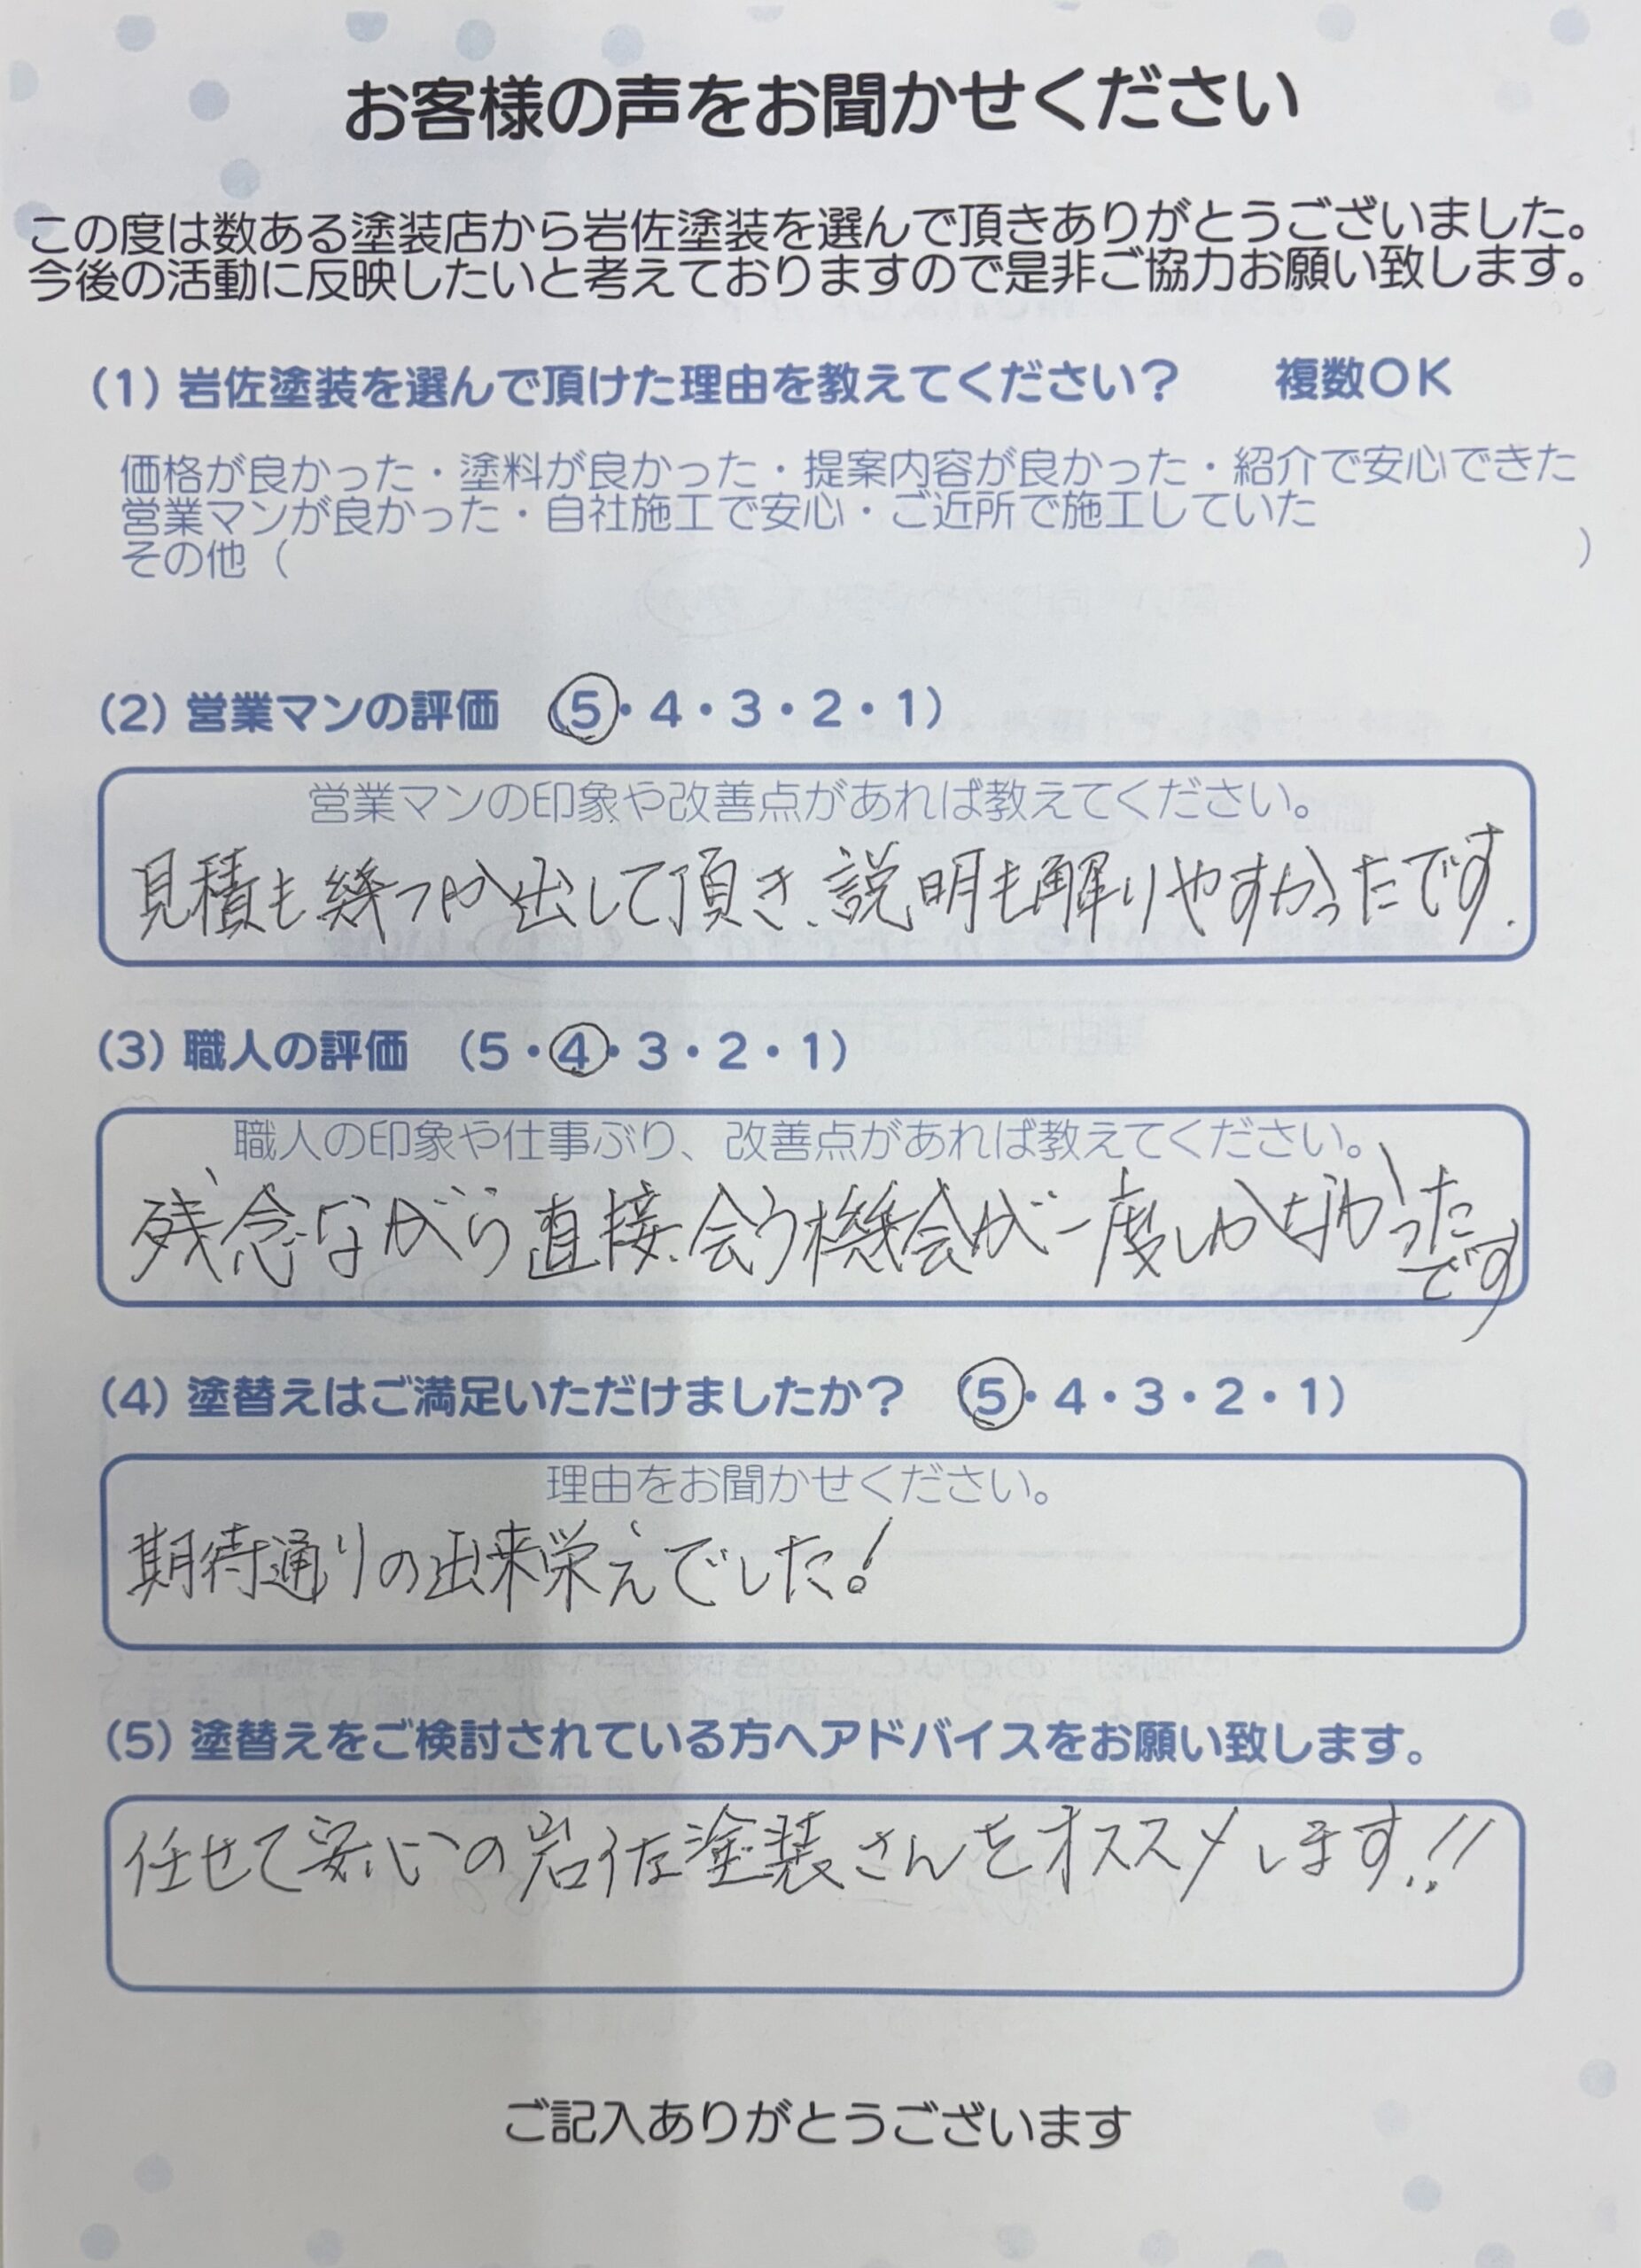 お客様の声をお聞かせください
この度は数ある塗装店から岩佐塗装を選んで頂きありがとうございました。
今後の活動に反映したいと考えておりますので是非ご協力お願い致します。
(1) 岩佐塗装を選んで頂けた理由を教えてください？　複数OK
価格が良かった・塗料が良かった・提案内容が良かった・紹介で安心できた
営業マンが良かった・自社施工で安心・ご近所で施工していた
その他（　　　）
(2) 営業マンの評価　(5・4・3・2・1)
営業マンの印象や改善点があれば教えてください。
見積も幾つか出して頂き、説明も解りやすかったです.
(3) 職人の評価　(5・4・3・2・1)
職人の印象や仕事ぶり、改善点があれば教えてください。
残念ながら直接会う機会が一度しかなかった
です
(4) 塗替えはご満足いただけましたか？　(5・4・3・2・1)
理由をお聞かせください。
期待通りの出来栄えでした!
(5) 塗替えをご検討されている方へアドバイスをお願い致します。
任せて安心の岩佐塗装さんをオススメします!!
ご記入ありがとうございます